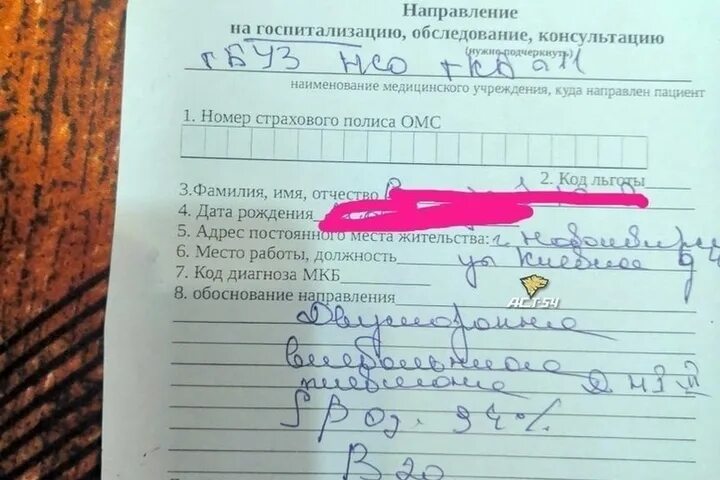 Направление
на госпитализацию, обследование, консультацию
(нужно подчеркнуть)
ГБУЗ НСО ГКБ №11
наименование медицинского учреждения, куда направлен пациент
1. Номер страхового полиса ОМС
2. Код льготы
3.Фамилия, имя, отчество
4. Дата рождения
5. Адрес постоянного места жительства: г. Новосибирск
6. Место работы, должность
ул Киевная
7. Код диагноза МКБ
8. обоснование направления
АСТ-54
Двусторонняя
внебольничная
пневмония
94%
B20